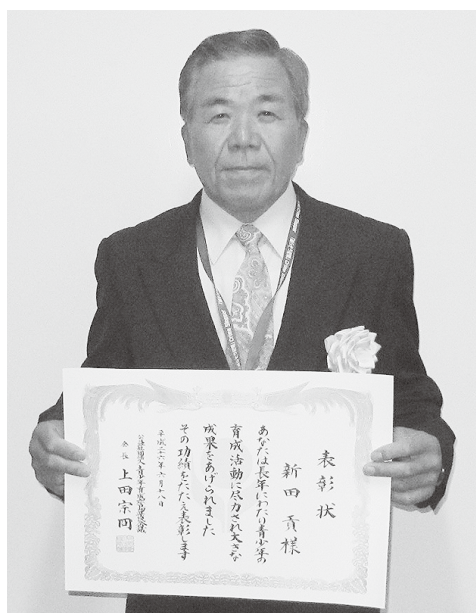 表彰状
新田 貢 様
あなたは長年にわたり青少年の
育成活動に尽力され大きな
成果をあげられました
その功績をたたえ表彰します
平成二十六年 月十八日
会長 上田宗冏